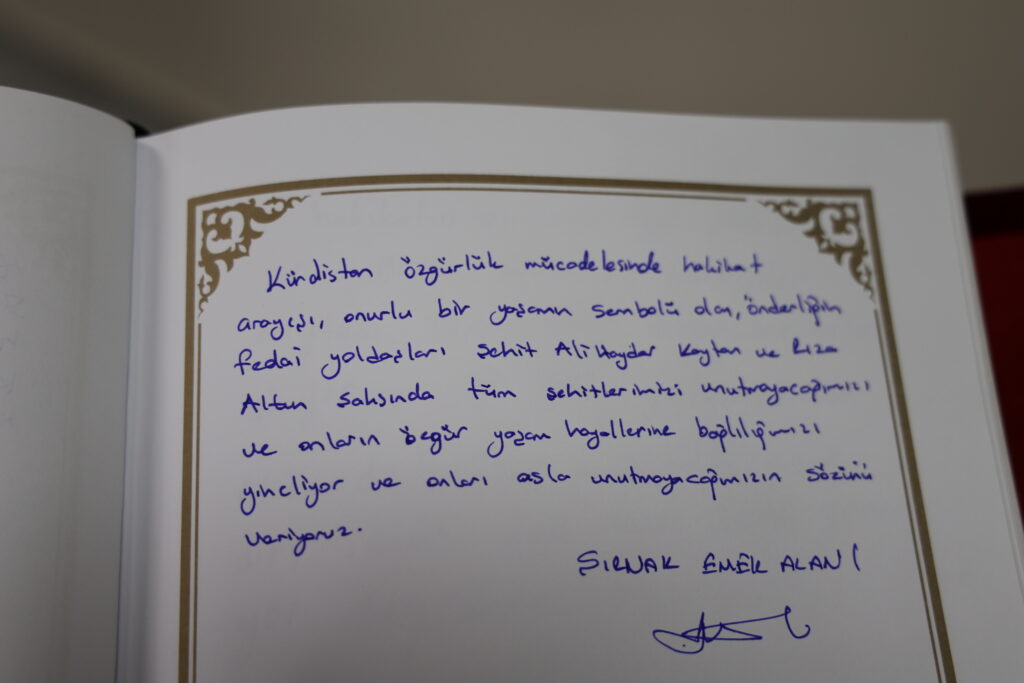 Kürdistan özgürlük mücadelesinde hakikat
arayışı, onurlu bir yaşamın sembolü olan, önderliğin
fedai yoldaşları şehit Ali Haydar Kaytan ve Rıza
Altun şahsında tüm şehitlerimizi unutmayacağımızı
ve onların özgür yaşam hayallerine bağlılığımızı
yineliyor ve onları asla unutmayacağımızın sözünü
veriyoruz.
ŞIRNAK EMEK ALANI